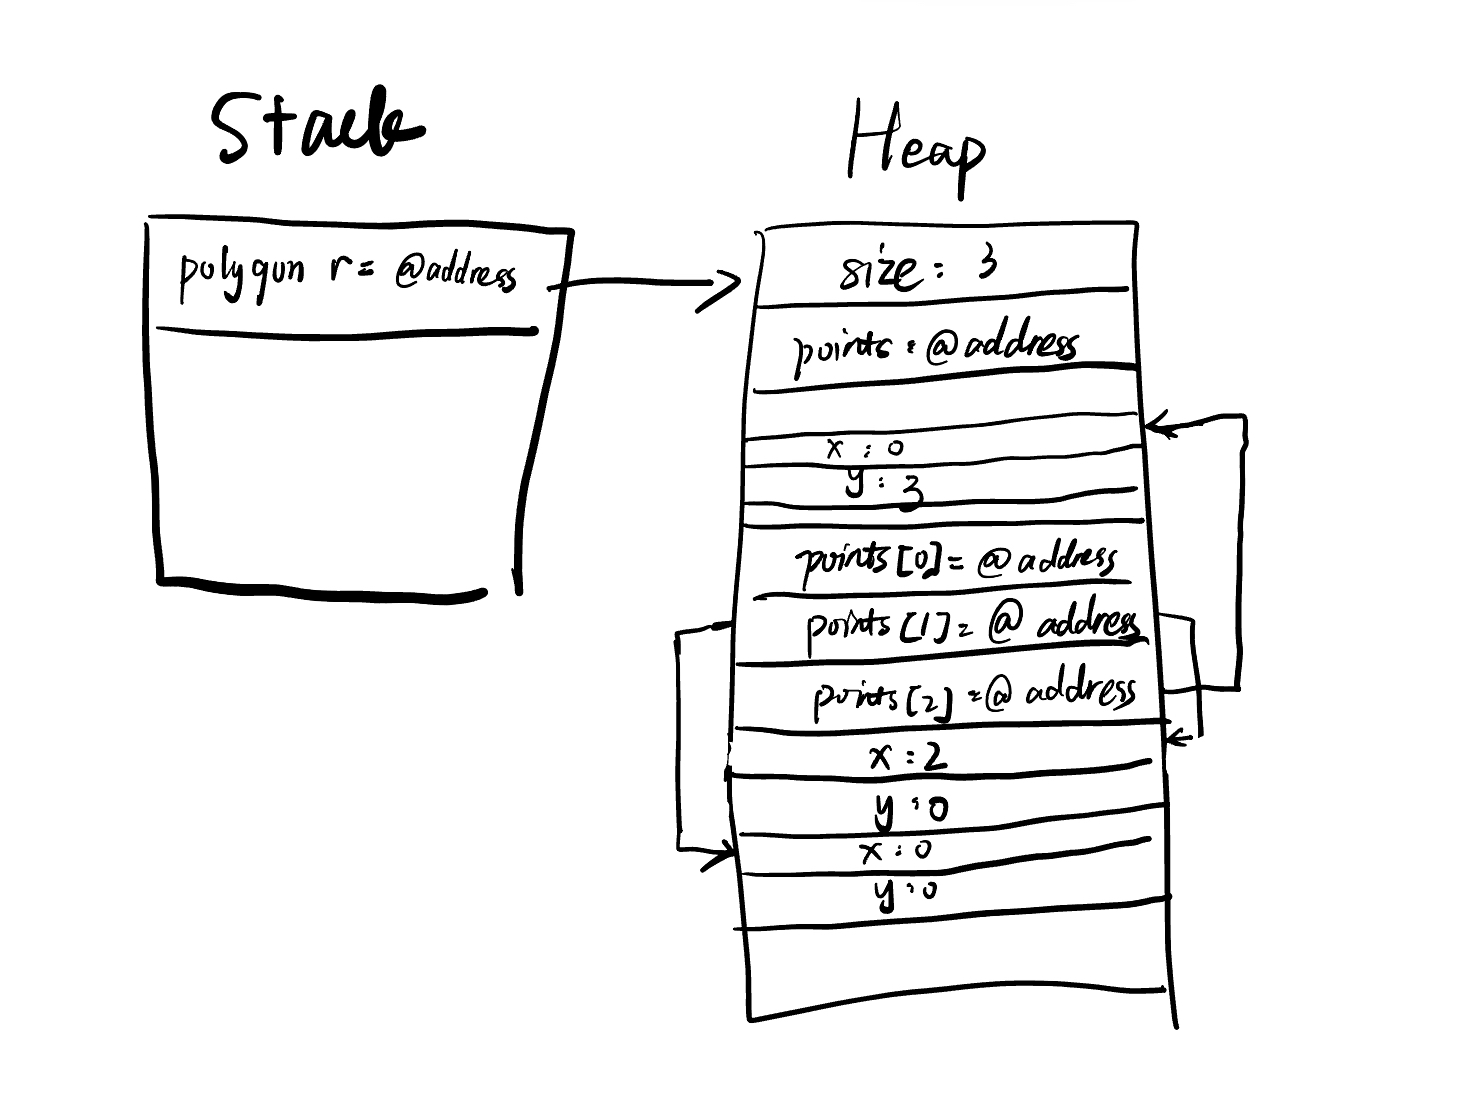 Stack
Heap
polygun r = @address
size : 3
points : @address
x : 0
y : 3
points[0] = @ address
points[1] = @ address
points[2] = @ address
x : 2
y : 0
x : 0
y : 0